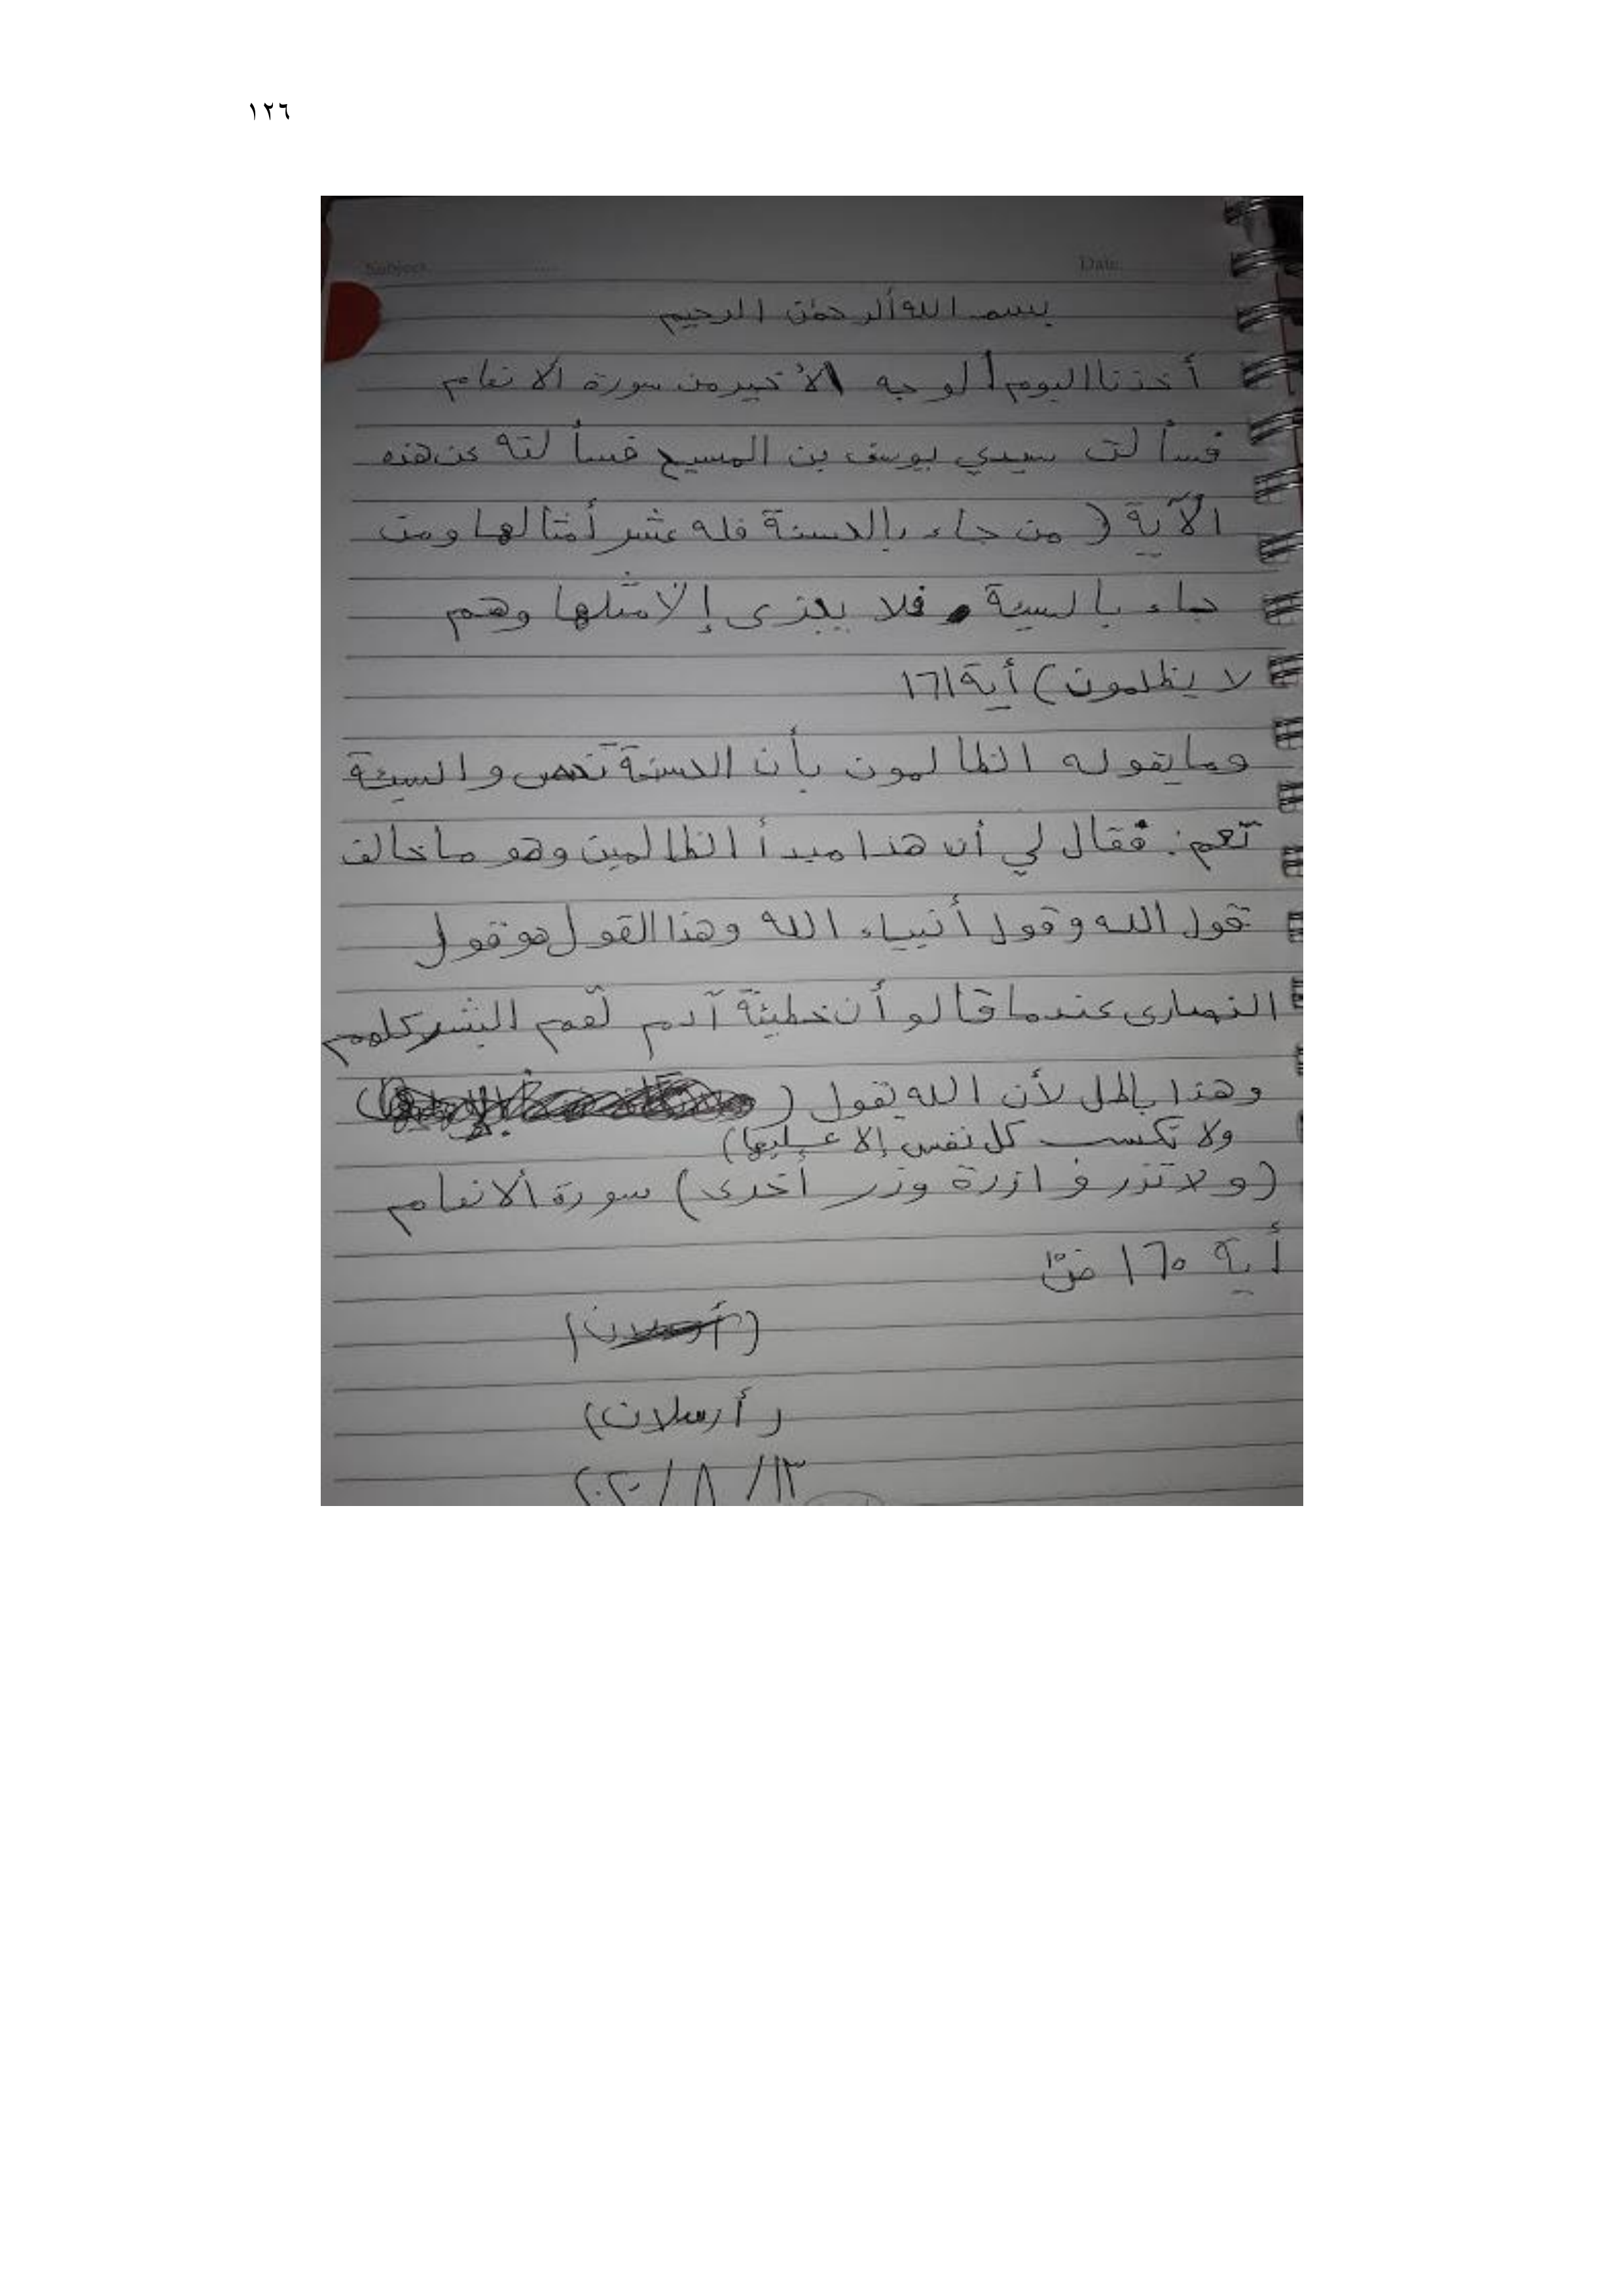 ١٢٦
Subject
Date
بسم الله ألرحمٰن الرحيم
أخذنا اليوم ألوجه الأخير من سورة الانعام
فسألت سيدي يوسف بن المسيح فسألته عن هذه
الآية ( من جاء بالحسنة فله عشر أمثالها ومن
جاء بالسيئة فلا يجزى إلا مثلها وهم
لا يظلمون ) أية ١٦١
وما يقوله الظالمون بأن الحسنة تخص والسيئة
تعم : فقال لي أن هذا مبدأ الظالمين وهو ما خالف
قول الله وقول أنبياء الله وهذا القول هو قول
النصارى عندما قالو أن خطيئة آدم تعم البشر كلهم
وهذا باطل لأن الله يقول (
ولا تكسب كل نفس إلا عليها )
( و لا تزر وازرة وزر أخرى ) سورة ألانعام
أية ١٦٥
( أرسلان )
( أرسلان )
١٣ / ٨ / ٢٠٢٠